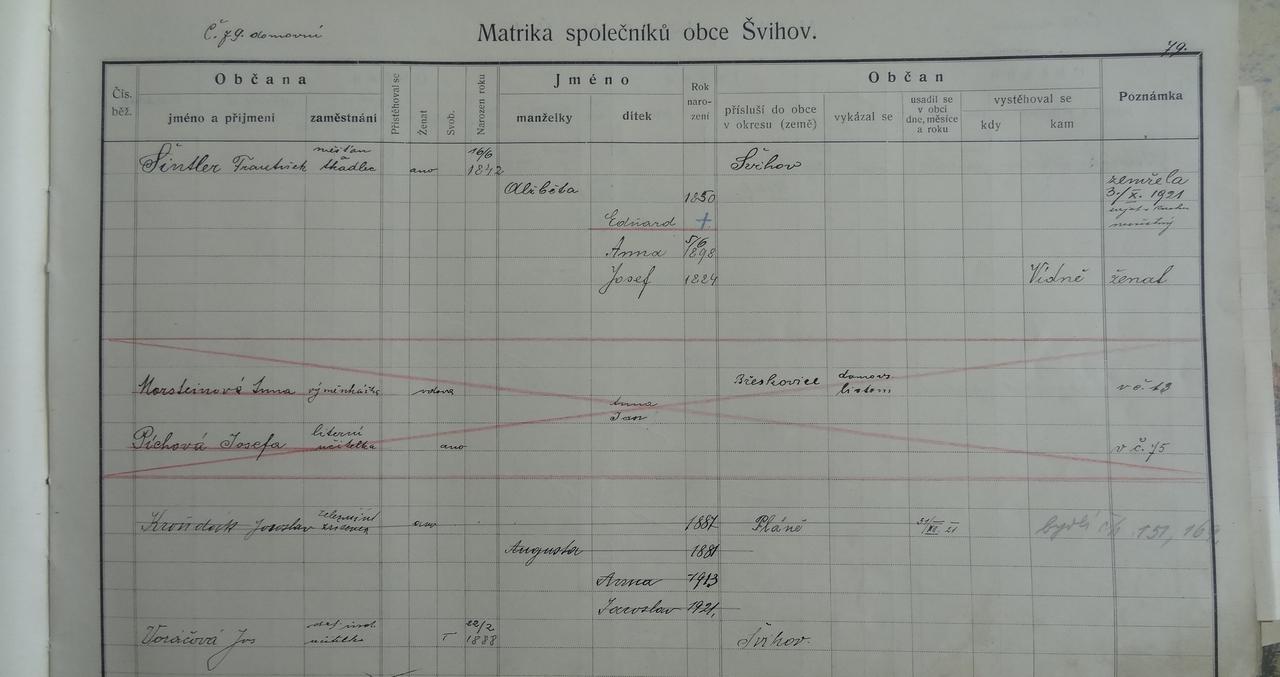 Č. 79. domovní
Matrika společníků obce Švihov.
79.
Čís. běž.
Občana
jméno a příjmení
zaměstnání
Přistěhoval se
Ženat
Svob.
Narozen roku
Jméno
manželky
dítek
Rok naro- zení
Občan
přísluší do obce v okresu (země)
vykázal se
usadil se v obci dne, měsíce a roku
vystěhoval se
kdy
kam
Poznámka
Šintler František měšťan a tkadlec ano 16/6 1842 Švihov
Alžběta 1850 zemřela 3./X. 1921
Eduard +
Anna 5/6 1898
Josef 1884 Vídně ženat
Morsteinová Anna výměnkářka vdova Břeskovice domovs. listem v č. 13
Anna
Jan
Píchová Josefa literní učitelka ano v č. 75
Jaroslav ano 1887 Pláně 31/XII 21 bydlí čp. 151, 169.
Augusta 1881
Anna 1913
Jaroslav 1921.
Voráčová Jos učitelka 22/2 1888 Švihov.